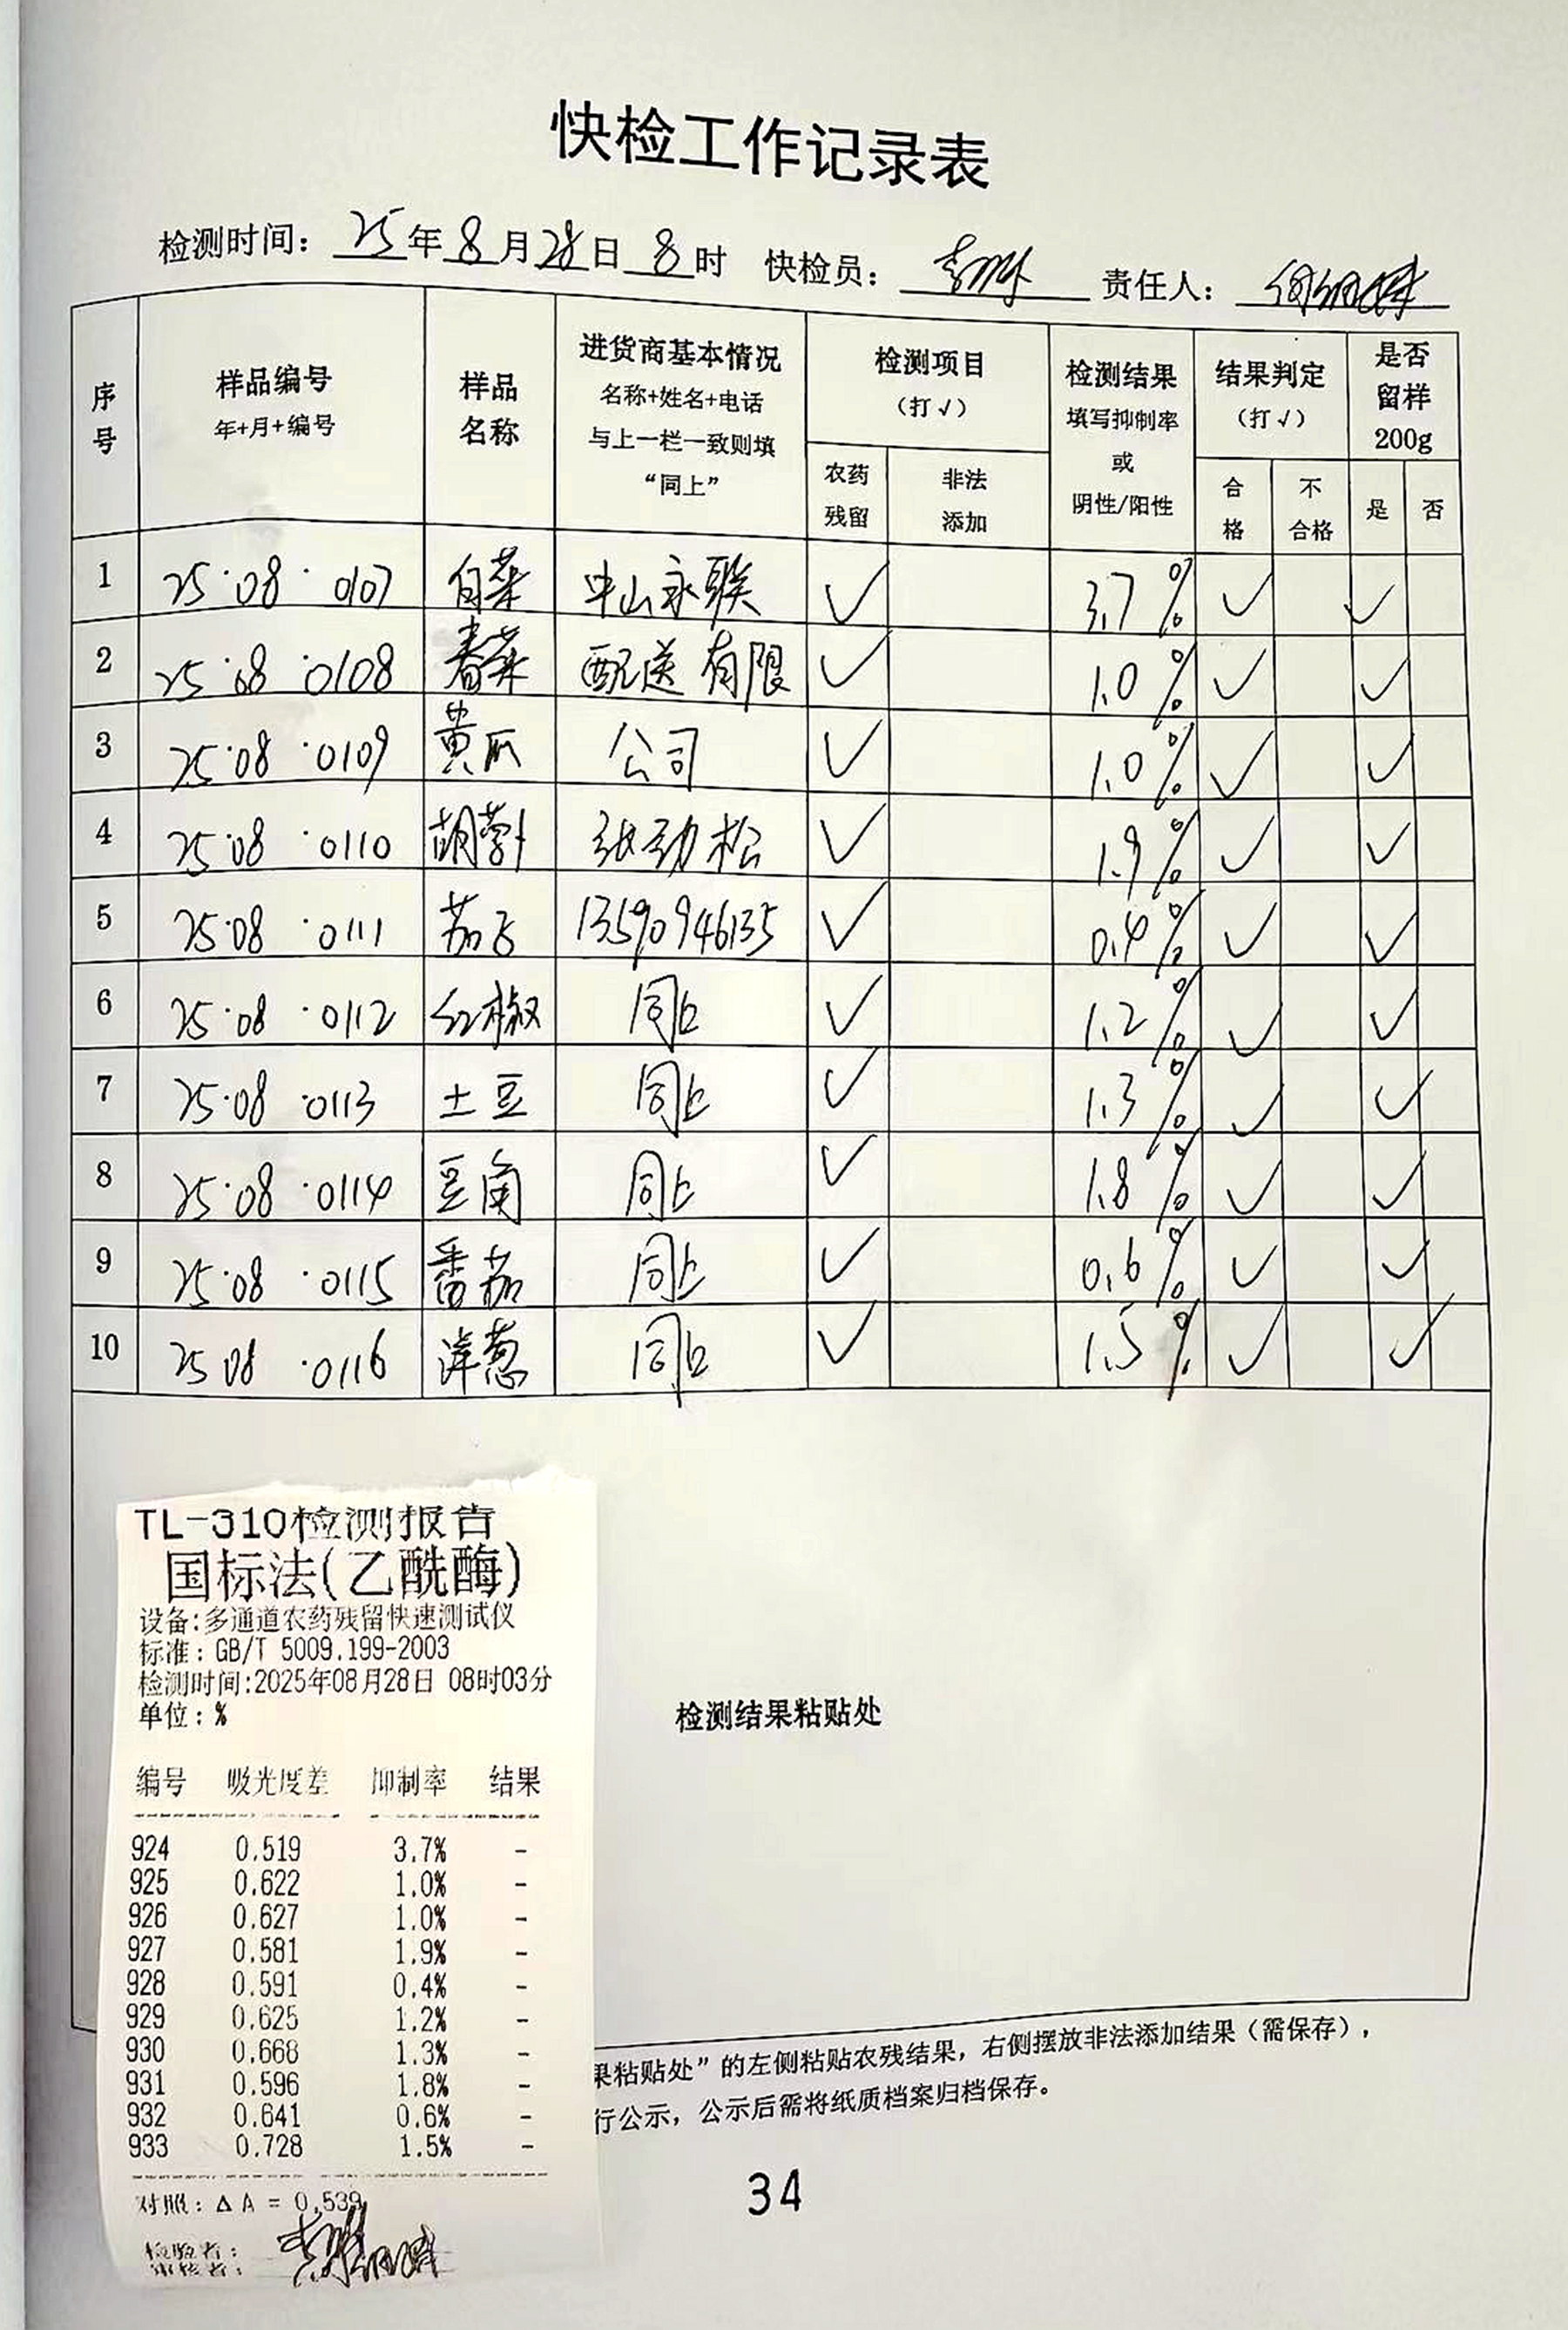 快检工作记录表
检测时间: 25年8月28日8时 快检员: 责任人:
序号 样品编号 年+月+编号 样品名称 进货商基本情况 名称+姓名+电话 与上一栏一致则填“同上” 检测项目(打√) 农药残留 非法添加 检测结果 填写抑制率或阴性/阳性 结果判定(打√) 合格 不合格 是否留样200g 是 否
1 25·08·0107 白菜 中山永联 √ 3.7% √ √
2 25·08·0108 春菜 配送有限 √ 1.0% √ √
3 25·08·0109 黄瓜 公司 √ 1.0% √ √
4 25·08·0110 胡萝卜 张劲松 √ 1.9% √ √
5 25·08·0111 茄子 13590946135 √ 0.4% √ √
6 25·08·0112 红椒 同上 √ 1.2% √ √
7 25·08·0113 土豆 同上 √ 1.3% √ √
8 25·08·0114 豆角 同上 √ 1.8% √ √
9 25·08·0115 番茄 同上 √ 0.6% √ √
10 25 08·0116 洋葱 同上 √ 1.5% √ √
检测结果粘贴处
TL-310检测报告
国标法(乙酰酶)
设备:多通道农药残留快速测试仪
标准: GB/T 5009.199-2003
检测时间:2025年08月28日 08时03分
单位: %
编号 吸光度差 抑制率 结果
924 0.519 3.7% -
925 0.622 1.0% -
926 0.627 1.0% -
927 0.581 1.9% -
928 0.591 0.4% -
929 0.625 1.2% -
930 0.668 1.3% -
931 0.596 1.8% -
932 0.641 0.6% -
933 0.728 1.5% -
对照: Δ A = 0.539
检验者:
审核者:
果粘贴处”的左侧粘贴农残结果,右侧摆放非法添加结果(需保存),
行公示,公示后需将纸质档案归档保存。
34